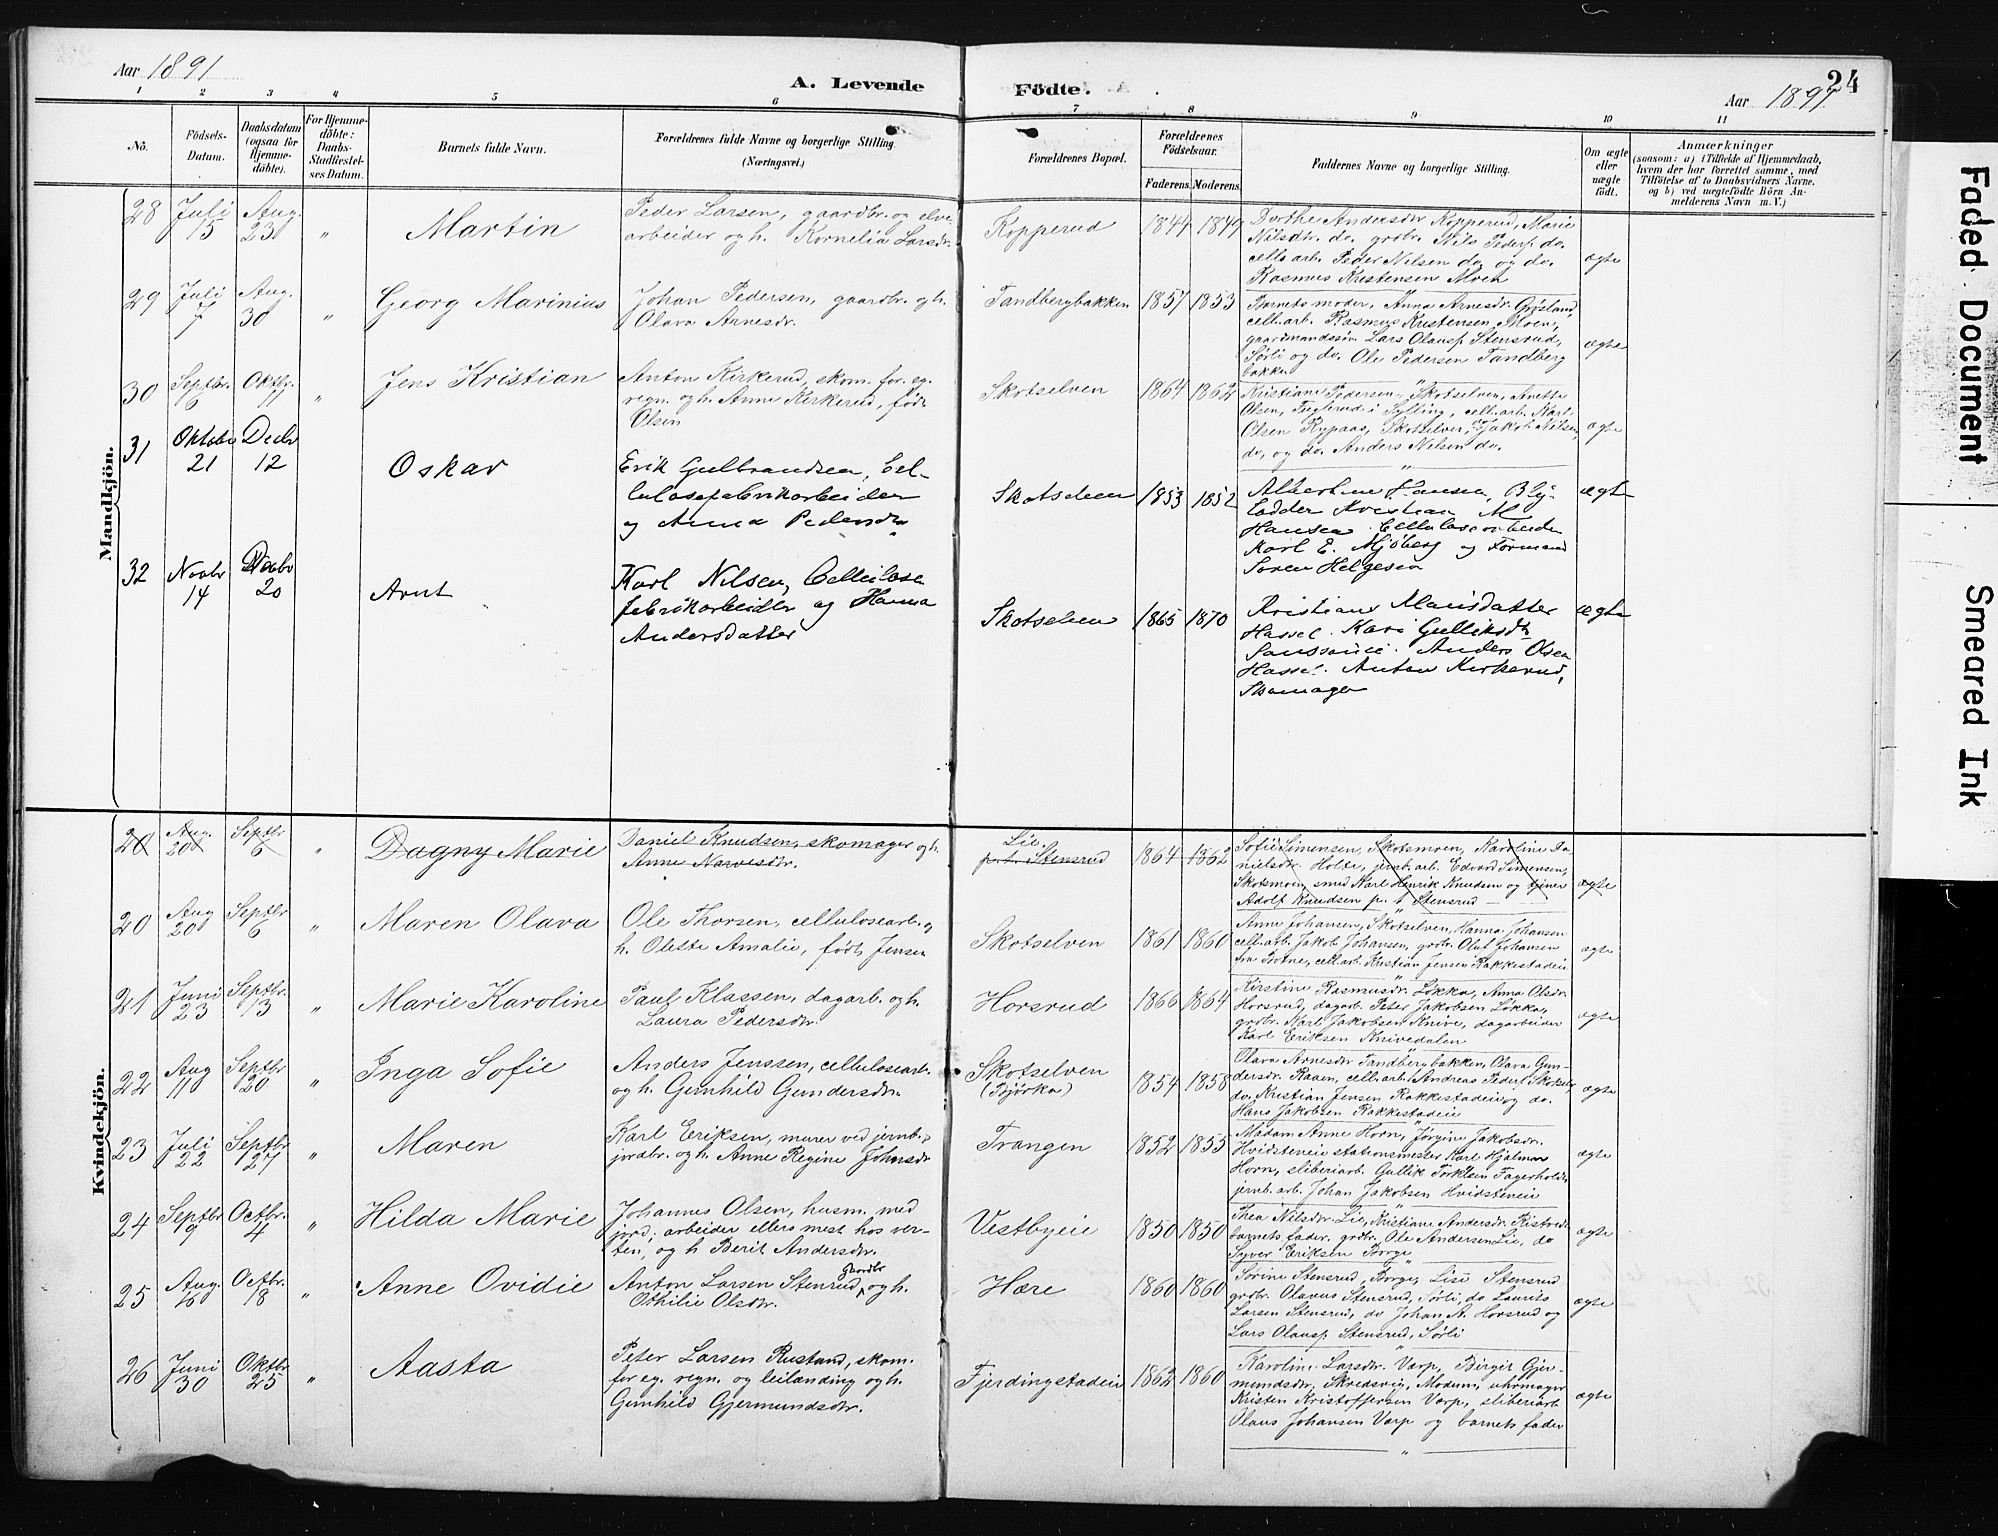 Aar 1891
A. Levende Födte.
Aar 1891
24
1 2 3 4 5 6 7 8 9 10 11
No.
Födsels-Datum.
Daabsdatum (ogsaa for Hjemme-döbte).
For Hjemme-döbte: Daabs-Stadfæstel-ses Datum.
Barnets fulde Navn.
Forældrenes fulde Navne og borgerlige Stilling. (Næringsvei.)
Forældrenes Bopæl.
Forældrenes Födselsaar.
Faderens. Moderens.
Faddernes Navne og borgerlige Stilling.
Om ægte eller uægte födt.
Anmærkninger
(saasom: a) i Tilfælde af Hjemmedaab,
hvem der har forrettet samme, med
Tilföielse af to Daabsvidners Navne,
og b) ved uægtefödte Börn An-
melderens Navn m. V.)
Mandkjön.
28 Juli 15 Aug. 23 " Martin
Peder Larsen, gaardbr. og elve
arbeider og h. Kornelia Larsdr.
Kopperud 1844 1849
Dorthe Andersdr Kopperud, Marie
Nilsdtr. do. grdbr. Nils Peders. do.
cell. arb. Peder Nilsen do. og do.
Rasmus Kristensen Moen
ægte
29 Juli 7 Aug. 30 " Georg Marinius
Johan Pedersen, gaardbr. og h.
Olava Arnesdr.
Tandbergbakken 1857 1853
Barnets moder, Anna Arnesdr. Grøsland,
cell. arb. Rasmus Kristensen Moen,
gaardmandssøn Lars Olausp. Stensrud,
Sørli og do. Ole Pedersen Tandberg
bakke.
ægte
30 Septbr. 6 Oktbr. 11 " Jens Kristian
Anton Kirkerud, skom. for eg.
regn. og h. Anne Kirkerud, født
Olsen
Skotselven 1864 1862
Kristiane Pedersen, Skotselven, Anette
Olsen, Fuglerud i Sylling, cell. arb. Karl
Olsen Rypaas, Skotselven, Jakob Nilsen,
do, og do. Anders Nelsen do.
ægte
31 Oktober 21 Decbr 12 Oskar
Erik Gulbrandsen, Cel-
lulosefabrikarbeider
og Anna Pedersdr.
Skotselven 1853 1852
Albertine Hansen, Bly-
lodder Kristian M
Hansen. Cellulosearbeider
Karl E. Mjøberg og Formand
Søren Helgesen
ægte
32 Novbr 14 20 Arnt
Karl Nilsen, Cellulose
fabrikarbeider og Hanna
Andersdatter
Skotselven 1865 1870
Kristiane Mansdatter
Hassel. Kari Gulliksdtr
Sanssouci. Anders Olsen
Hassel. Anton Kirkerud,
Skomager
ægte
Kvindekjön.
20 Aug. 20 Septbr 6 " Dagny Marie
Daniel Knudsen, skomager og h.
Anne Narvesdtr.
Lie. p. t. Stensrud 1864 1862
Sofie Simensen, Skotsmoen, Karoline Da-
nielsdr. Holte, jernb. arb. Edvard Simensen,
Skotsmoen, smed Karl Henrik Knudsen og tjener
Adolf Knudsen p. t. Stensrud
ægte
20 Aug 20 Septbr 6 " Maren Olava
Ole Thorsen, cellulosearb. og
h. Olette Amalie, født Jensen
Skotselven 1861 1860
Anne Johansen, Skotselven, Hanna Johansen
cell. arb. Jakob Johansen, grdbr. Oluf Johansen
fra Botne, cell. arb. Kristian Jensen Rakkestadeie
ægte
21 Juni 23 Septbr. 13 " Marie Karoline
Paul Klassen, dagarb. og h.
Laura Pedersdtr.
Horsrud 1866 1864
Kirstine Rasmusdr. Løkka, Anna Olsdr.
Horsrud, dagarb. Peter Jakobsen Løkka,
grdbr. Karl Jakobsen Knive, dagarbeider
Karl Eriksen Knivedalen
ægte
22 Aug 11 Septbr 20 " Inga Sofie
Anders Jenssen, cellulosearb.
og h. Gunhild Gundersdtr.
Skotselven (Bjørka) 1854 1858
Olava Arnesdr Tandbergbakken, Olava Gun-
dersdr. Raaen, cell. arb. Andreas Peders. Skotselv,
do. Kristian Jensen Rakkestadeie og do.
Hans Jakobsen Rakkestadeie
ægte
23 Juli 22 Septbr 27 " Maren
Karl Eriksen, murer ved jernb.,
jordbr. og h. Anne Regine Johnsdr
Trangen 1852 1855
Madam Anne Horn, Jørgine Jakobsdr.
Hvidsteneie stationsmester Karl Hjalmar
Horn, sliberiarb. Gullik Torklsen Fagerholdt
jernb. arb. Johan Jakobsen Hvidsteneie
ægte
24 Septbr 9 Octbr. 4 " Hilda Marie
Johannes Olsen, husm. med
jord; arbeider ellers mest hos ver-
ten, og h Berit Andersdtr.
Vestbyeie 1850 1850
Thea Nilsdtr. Lie, Kristiane Andersdr. Kistrud
barnets fader, grdbr. Ole Andersen Lie, do
Syver Eriksen Borge
ægte
25 Aug. 16 Octbr. 18 " Anne Ovidie
Anton Larsen Stensrud, gaardbr og h.
Othilie Olsdtr.
Hære 1860 1860
Sørine Stensrud, Borge, Lise Stensrud
grdbr. Olavus Stensrud, Sørli, do Laurits
Larsen Stensrud, do Johan A. Horsrud og
Lars Olausp. Stensrud, Sørli
ægte
26 Juni 30 Oktbr 25 " Aasta
Peter Larsen Rustand, skom.
for eg. regn. og leilænding og h.
Gunhild Gjermundsdtr.
Fjerdingstadeie 1862 1860
Karoline Larsdtr. Varp, Birgit Gjer-
mundsdtr. Skredsvig, Modum, uhrmager
Kristen Kristoffersen Varp, sliberiarb
Olaus Johansen Varp og barnets fader
ægte
Faded Document
Smeared Ink